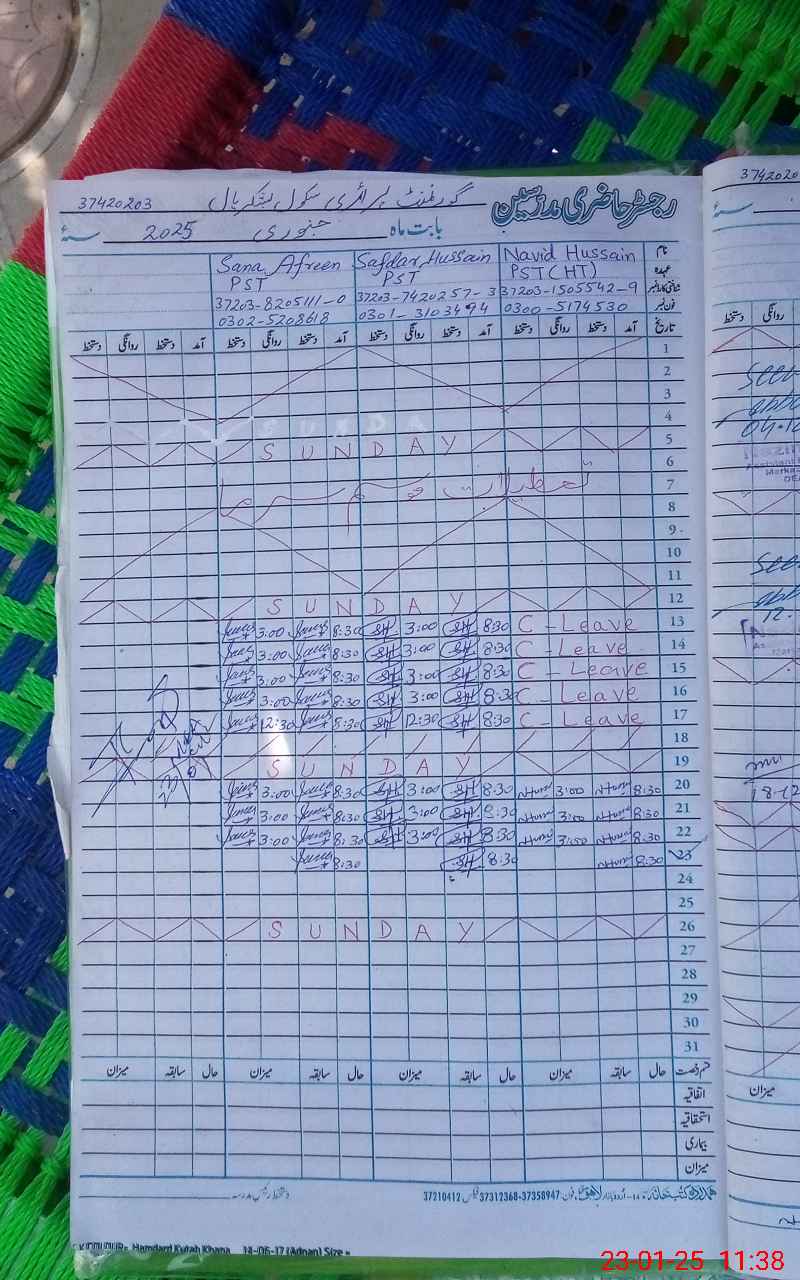 رجسٹر حاضری مدرسین گورنمنٹ پرائمری سکول 37420203
بابت ماہ جنوری 2025 سنہ
نام Navid Hussain Safdar Hussain Sana Afreen
عہدہ PST(HT) PST PST
شناختی کارڈ نمبر 37203-1505542-9 37203-7420257-3 37203-8205111-0
فون نمبر 0300-5174530 0301-3103494 0302-5208618
تاریخ آمد دستخط روانگی دستخط آمد دستخط روانگی دستخط آمد دستخط روانگی دستخط آمد دستخط روانگی دستخط
1
2
3
4
SUNDAY 5
6
تعطیلات موسم سرما 7
8
9
10
11
SUNDAY 12
3:00 8:30 3:00 8:30 C-Leave 13
3:00 8:30 3:00 8:30 C-Leave 14
3:00 8:30 3:00 8:30 C-Leave 15
3:00 8:30 3:00 8:30 C-Leave 16
12:30 8:30 12:30 8:30 C-Leave 17
18
SUNDAY 19
3:00 8:30 3:00 8:30 3:00 8:30 20
3:00 8:30 3:00 8:30 3:00 8:30 21
3:00 8:30 3:00 8:30 3:00 8:30 22
8:30 8:30 8:30 23
24
25
SUNDAY 26
27
28
29
30
31
قسم رخصت حال سابقہ میزان حال سابقہ میزان حال سابقہ میزان حال سابقہ میزان
اتفاقیہ
استحقاقیہ
بیماری
میزان
ہمدرد کتب خانہ اردو بازار لاہور فون 37312368-37358947 فیکس 37210412
دستخط رئیس مدرسہ
Hamdard Kutab Khana 14-06-17 (Adnan) Size =
37420203
دستخط روانگی
Seen
Seen
12.
میزان
23-01-25 11:38